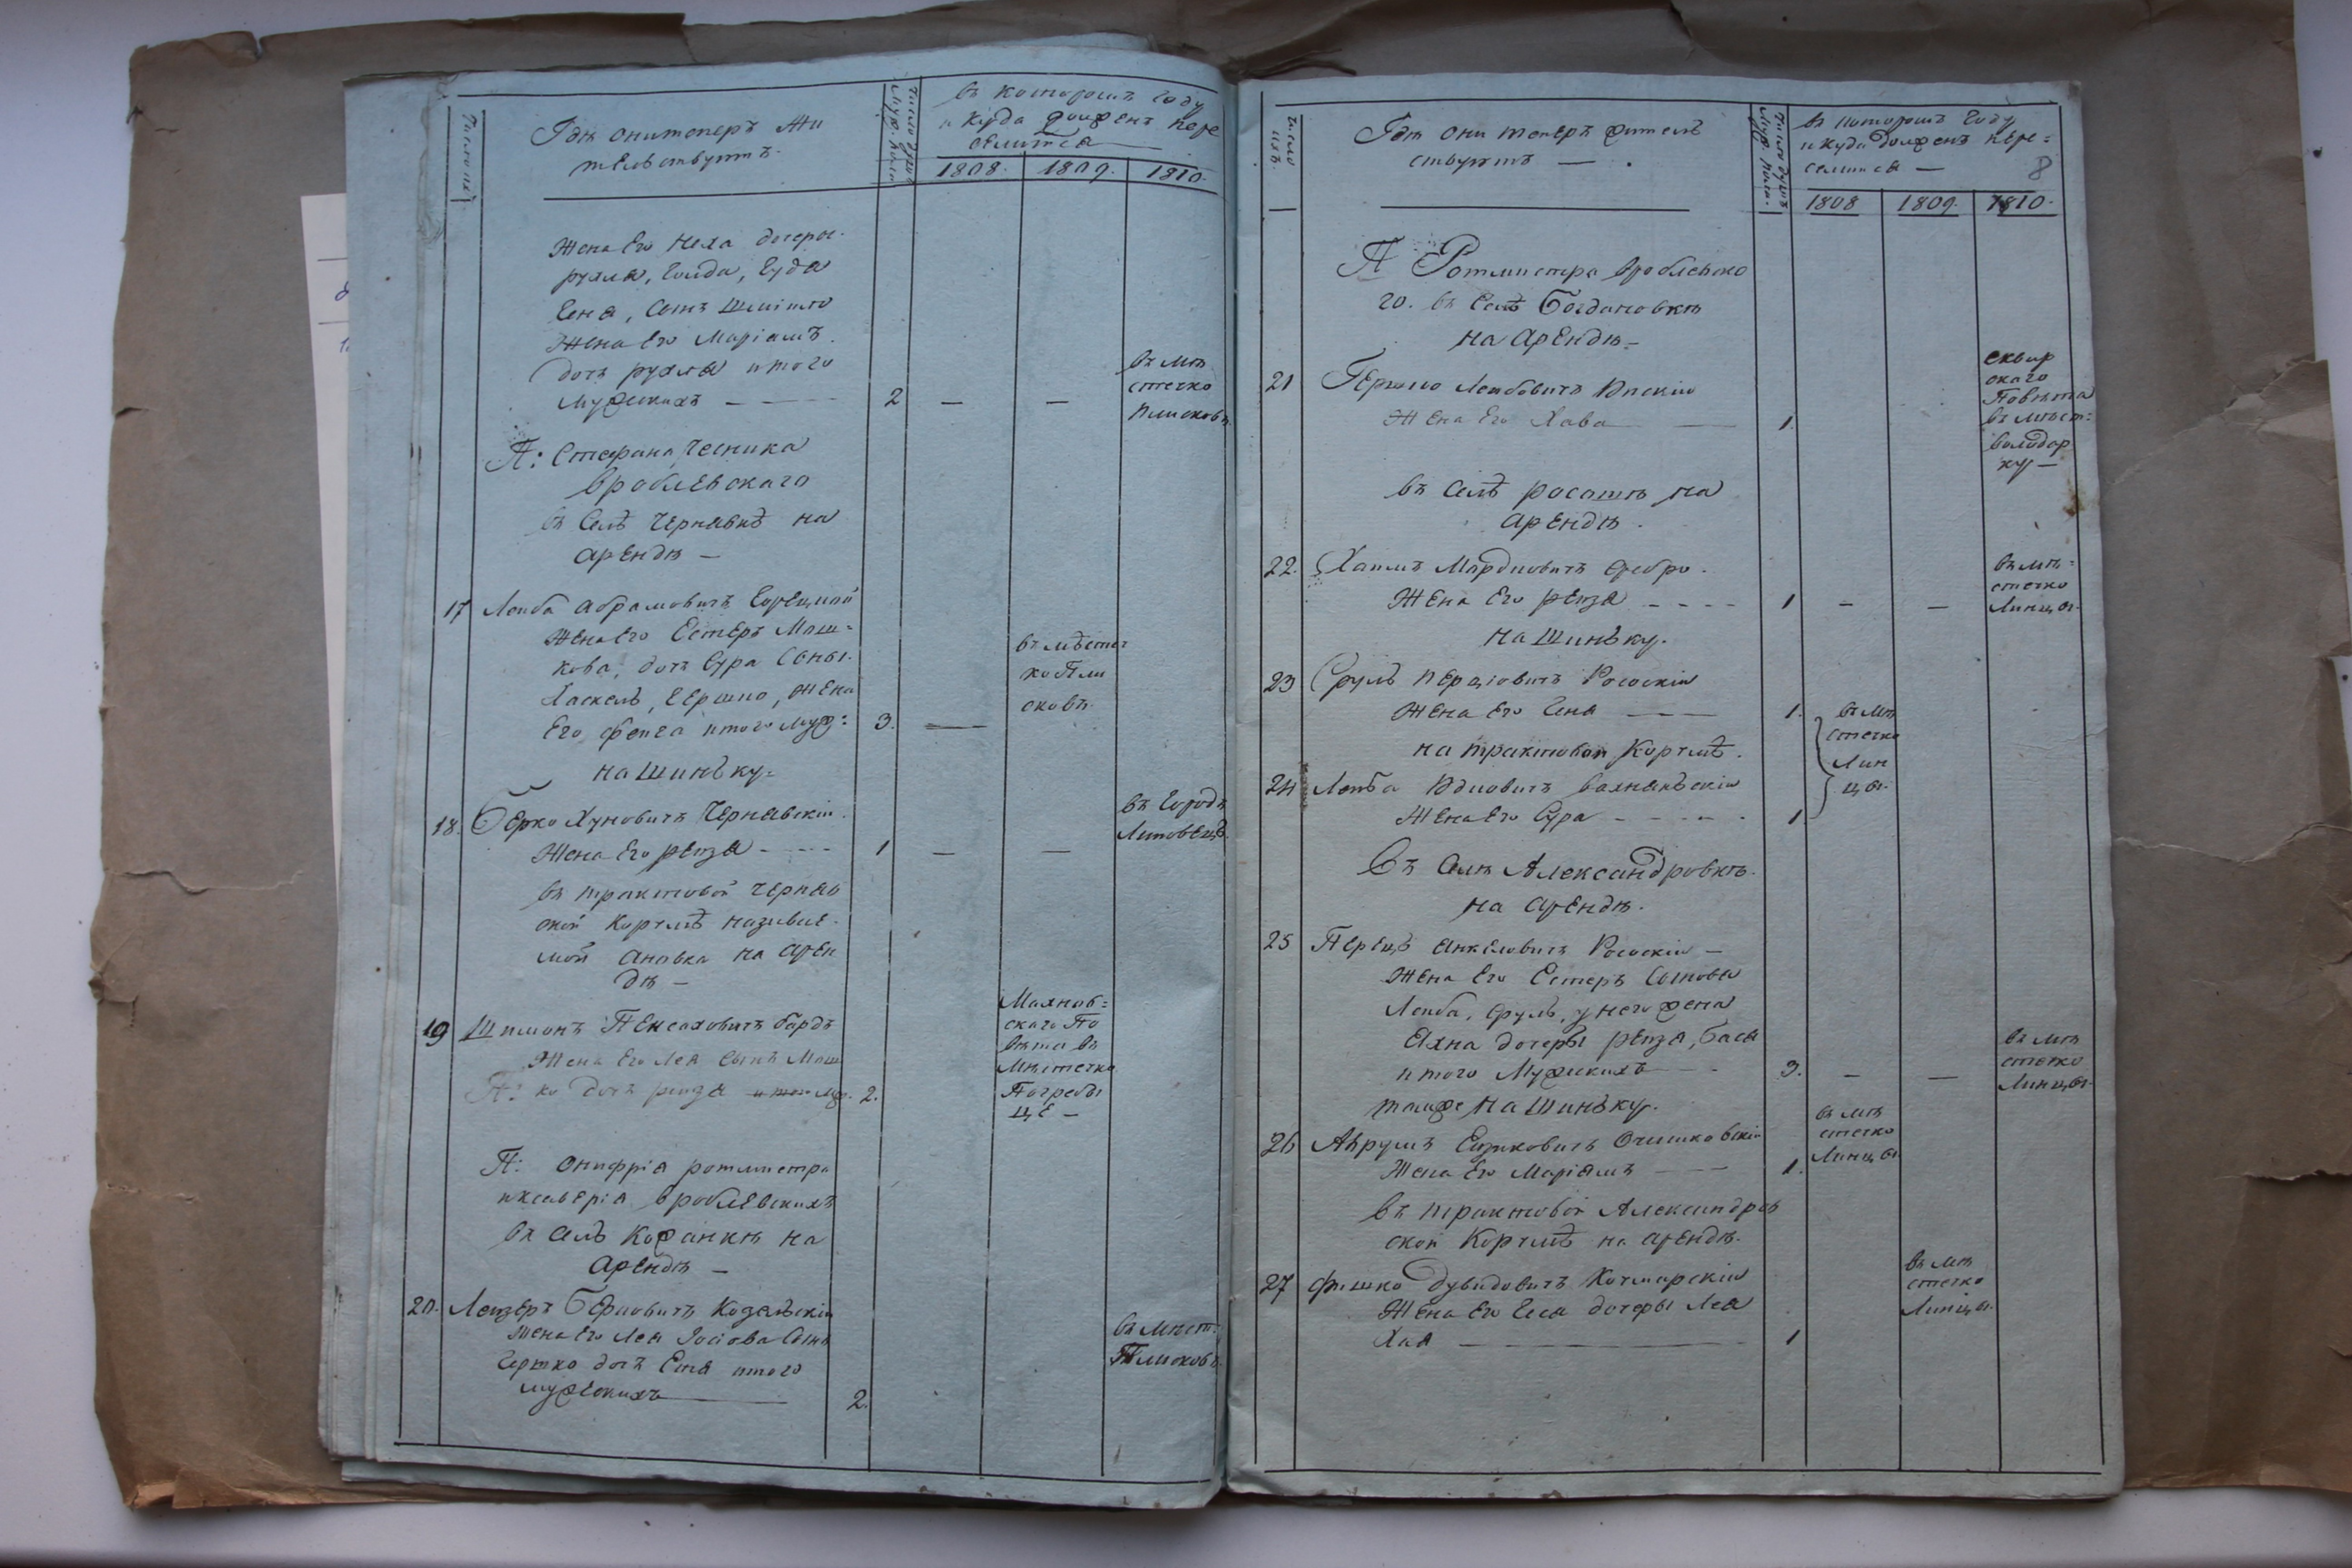 Число ихъ
Гдѣ они теперъ жи
тельствуютъ.
Число душъ
Муж: пола
въ которомъ году
и куда долженъ пере
селится
1808. 1809. 1810.
Жена Его Неха дочеры
рухля, Голда, Гудя
Геня, Сынъ Шміто
Жена Его Маріамъ.
дочъ рухля итого
мужескихъ — 2 — —
въ мѣ
стечко
Плисковъ.
П: Стефана Чесника
Вроблевскаго
въ Селѣ Чернявкѣ на
арендѣ —
17 Лейба Абрамовичъ
Жена Его Естеръ Мош=
кова, дочъ Сура Сыны.
Хаскель, Гершко, Жена
Его Фейга итого муж: 3. —
въ мѣстеч
ко Пли
сковъ.
на шинъку=
18. Берко Хуновичъ Чернявскій
Жена Его рейзя - - - - 1 — —
въ городъ
Липовецъ.
въ трактовой Черняв
ской Корчмѣ називае.
мой Ановка на арен
дѣ —
19 Шимонъ Пейсаховичъ бардъ
Жена Его Лея Сынъ Мош
П: ко дочъ рейзя муж. 2.
Махнов=
скаго По
вѣта въ
Мѣстечко
Погребы
ще —
П: Онифрія ротмистра
и Ксаверія Вроблевскихъ
въ Селѣ Кожанкѣ на
Арендѣ —
20. Лейзеръ Берковичъ Козанскій
Жена Его Лея Іосіова Сынъ
Гершко дочъ Етя итого
мужескихъ — 2.
въ Мѣст:
Плисковъ.
Число
ихъ.
Гдѣ они теперъ жителъ
ствуютъ — .
Число душъ
Муж. пола.
въ которомъ Году
и куда долженъ пере=
селится —
8
1808 1809. 1810.
П Ротмистра Вроблевска
го. въ Селѣ Богдановкѣ
на Арендѣ —
21 Гершко Лейбовичъ
Жена Его Хава — 1.
сквир
скаго
Повѣта
въ мѣст:
Володар
ку —
въ Селѣ росошѣ на
арендѣ.
22. Хаимъ Мардковичъ
Жена Его рейзя - - - - 1 — —
въ мѣ=
стечко
Линцы.
на шинъку.
23 Сруль Перціовичъ Рososкій
Жена Его Геня — 1.
на трактовой Корчмѣ.
въ мѣ
стечко
Лин
цы.
24 Лейба Ициовичъ
Жена Его Сура - - - - 1
Въ Селѣ Александровкѣ.
на арендѣ.
25 Перецъ Янкеловичъ Рососкій —
Жена Его Естеръ Сыновя
Лейба, Сруль, у него жена
Яхна дочеры рейзя, Бася
итого Мужескихъ — 3. — —
въ мѣ
стечко
Линцы.
тамже на шинъку.
26 Аврумъ Ейзиковичъ Очитковскій
Жена Его Маріямъ — 1.
въ мѣ
стечко
Линцы
въ трактовой Александров
ской Корчмѣ на арендѣ.
27 Фишко Дувидовичъ Кочмарскій
Жена Его Геся дочеры Лея
Хая — 1
въ мѣ
стечко
Линцы.